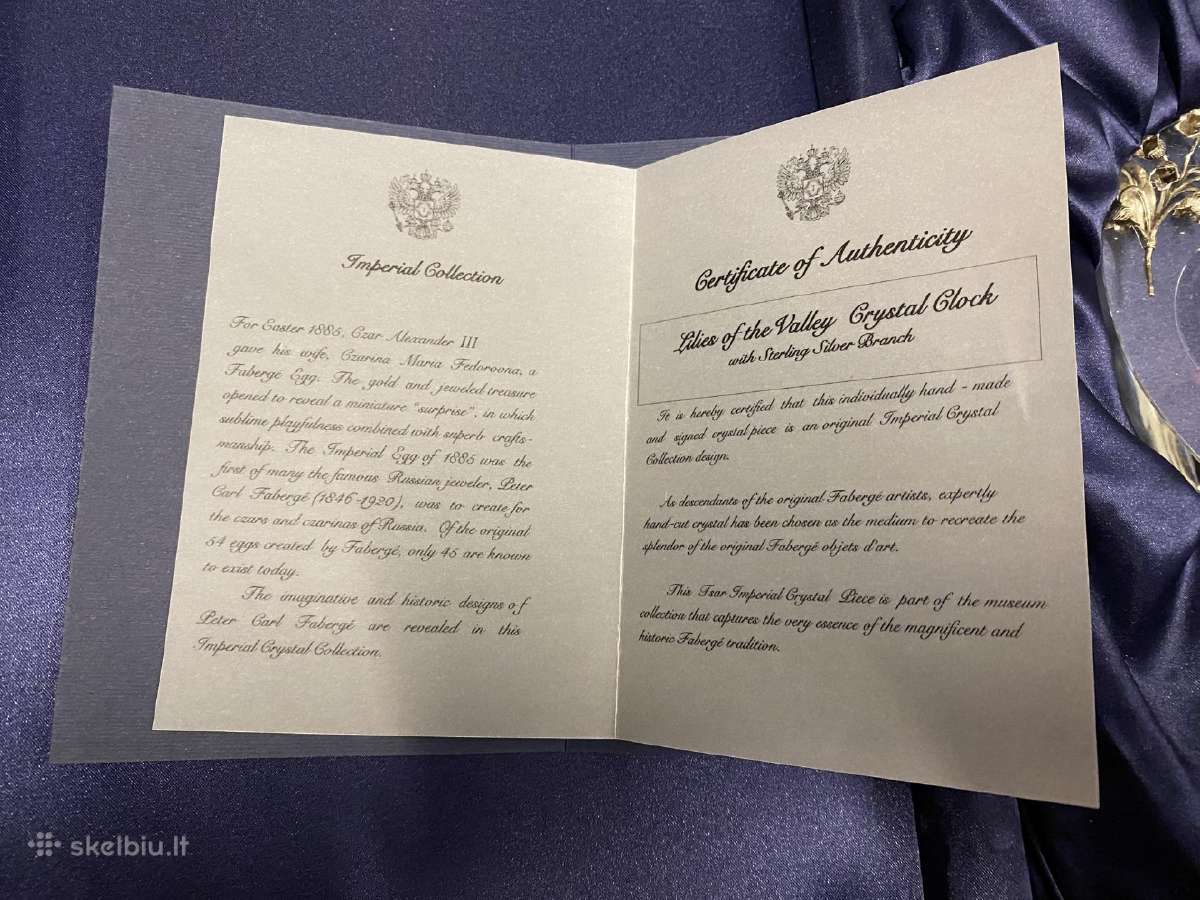 Imperial Collection
For Easter 1885, Czar Alexander III
gave his wife, Czarina Maria Fedoroona, a
Fabergé Egg. The gold and jeweled treasure
opened to reveal a miniature "surprise", in which
sublime playfulness combined with superb crafts-
manship. The Imperial Egg of 1885 was the
first of many the famous Russian jeweler, Peter
Carl Fabergé (1846-1920), was to create for
the czars and czarinas of Russia. Of the original
54 eggs created by Fabergé, only 45 are known
to exist today.
The imaginative and historic designs of
Peter Carl Fabergé are revealed in this
Imperial Crystal Collection.
Certificate of Authenticity
Lilies of the Valley Crystal Clock
with Sterling Silver Branch
It is hereby certified that this individually hand - made
and signed crystal piece is an original Imperial Crystal
Collection design.
As descendants of the original Fabergé artists, expertly
hand-cut crystal has been chosen as the medium to recreate the
splendor of the original Fabergé objets d'art.
This Tsar Imperial Crystal Piece is part of the museum
collection that captures the very essence of the magnificent and
historic Fabergé tradition.
skelbiu.lt